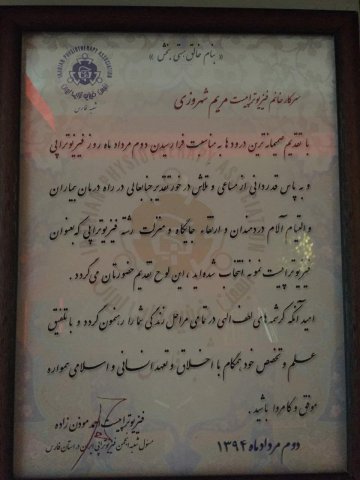 « بنام خالق هستی بخش »
IRANIAN PHYSIOTHERAPY ASSOCIATION
انجمن فیزیوتراپی ایران
شعبه فارس
سرکار خانم فیزیوتراپیست مریم شهروزی
با تقدیم صمیمانه ترین درودها به مناسبت فرا رسیدن دوم مرداد ماه روز فیزیوتراپی
و به پاس قدردانی از مساعی و تلاش در خور تقدیر جنابعالی در راه درمان بیماران
و التیام آلام دردمندان و ارتقاء جایگاه و منزلت رشته فیزیوتراپی که بعنوان
فیزیوتراپیست نمونه انتخاب شده اید ، این لوح تقدیم حضورتان می گردد .
امید آنکه کرشمه های لطف الهی در تمامی مراحل زندگی شما را رهنمون گردد و با تلفیق
علم و تخصص خود همگام با اخلاق و تعهد انسانی و اسلامی همواره
موفق و کامروا باشید .
فیزیوتراپیست موذن زاده
مسئول شعبه انجمن فیزیوتراپی ایران در استان فارس
دوم مرداد ماه ۱۳۹۴